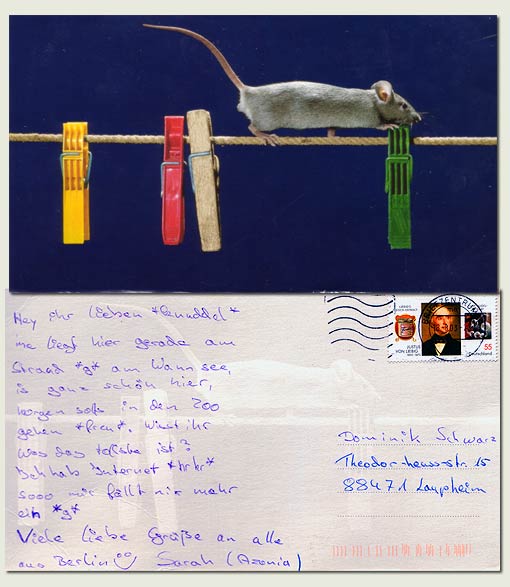 Hey ihr lieben *knuddel*
me liegt hier gerade am
Strand *g* am Wannsee,
is ganz schön hier,
morgen solls in den Zoo
gehen *freu*. Wisst ihr
was das tollste ist?
Ich hab Internet *hrhr*
sooo mir fällt nix mehr
ein *g*
Viele liebe Grüße an alle
aus Berlin Sarah (Azonia)
JUSTUS
VON LIEBIG
55
Deutschland
ZENTRUM
Dominik Schwarz
Theodor-heuss-str. 15
88471 Laupheim